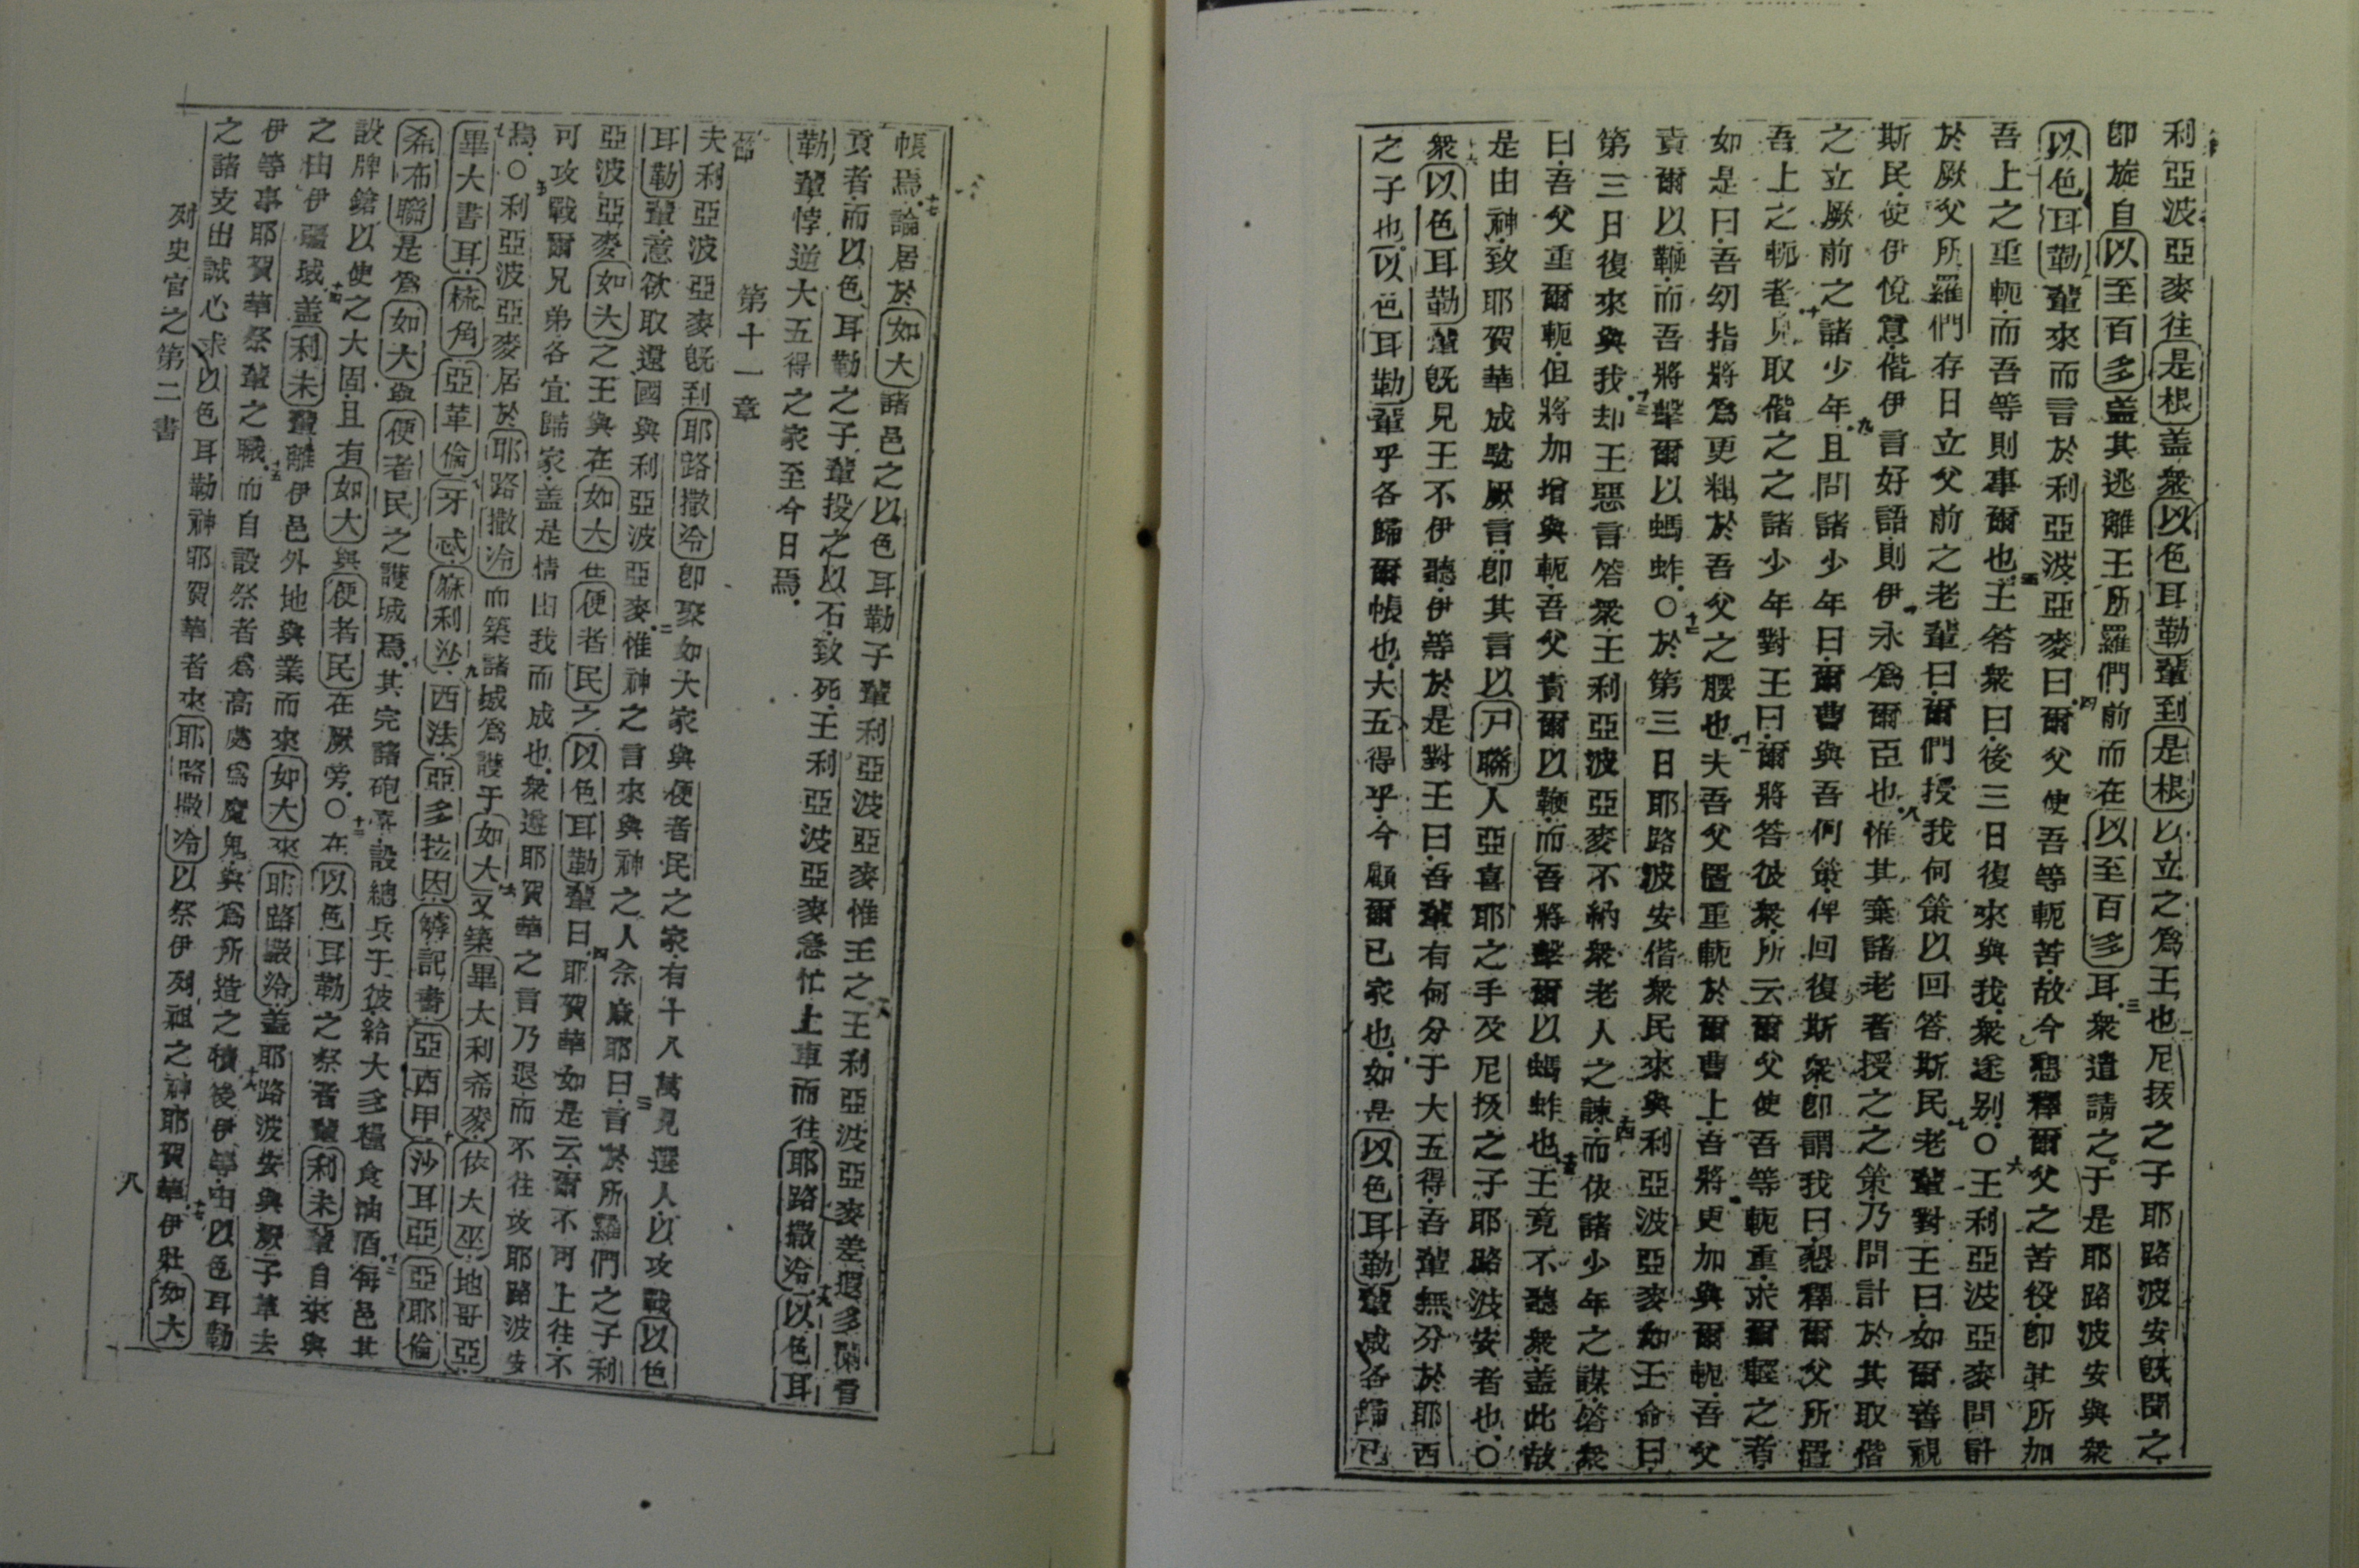 利亞波亞麥往是根盖衆以色耳勒輩到是根以立之爲王也尼扳之子耶路波安旣聞之
卽旋自以至百多盖其逃離王所羅們前而在以至百多耳衆遣請之于是耶路波安與衆
以色耳勒輩來而言於利亞波亞麥曰爾父使吾等軛苦故今懇釋爾父之苦役卽其所加
吾上之重軛而吾等則事爾也王答衆曰後三日復來與我衆遂别○王利亞波亞麥問計
於厥父所羅們存日立父前之老輩曰爾們授我何策以回答斯民老輩對王曰如爾善視
斯民使伊悅意偕伊言好語則伊永爲爾臣也惟其棄諸老者授之之策乃問計於其取偕
之立厥前之諸少年且問諸少年曰爾曹與吾何策俾回復斯衆卽謂我曰懇釋爾父所置
吾上之軛者見取偕之之諸少年對王曰爾將答彼衆所云爾父使吾等軛重求爾輕之者
如是曰吾幼指將爲更粗於吾父之腰也夫吾父置重軛於爾曹上吾將更加與爾軛吾父
責爾以鞭而吾將擊爾以螞蚱○於第三日耶路波安偕衆民來與利亞波亞麥如王命曰
第三日復來與我却王惡言答衆王利亞波亞麥不納衆老人之諫而依諸少年之謀答衆
曰吾父重爾軛但將加增與軛吾父責爾以鞭而吾將擊爾以螞蚱也王竟不聽衆盖此故
是由神致耶賀華成騐厥言卽其言以尸聯人亞喜耶之手及尼扳之子耶路波安者也○
衆以色耳勒輩旣見王不伊聽伊等於是對王曰吾輩有何分于大五得吾輩無分於耶西
之子也以色耳勒輩乎各歸爾帳也大五得乎今顧爾已家也如是以色耳勒輩咸各歸已
帳焉論居於如大諸邑之以色耳勒子輩利亞波亞麥惟王之王利亞波亞麥差遐多闌督
貢者而以色耳勒之子輩投之以石致死王利亞波亞麥急忙上車而往耶路撒冷以色耳
勒輩悖逆大五得之家至今日焉
第十一章
夫利亞波亞麥旣到耶路撒冷卽聚如大家與便者民之家有十八萬見選人以攻戰以色
耳勒輩意欲取還國與利亞波亞麥惟神之言來與神之人佘麻耶曰言於所羅們之子利
亞波亞麥如大之王與在如大在便者民之以色耳勒輩曰耶賀華如是云爾不可上往不
可攻戰爾兄弟各宜歸家盖是情由我而成也衆遵耶賀華之言乃退而不往攻耶路波安
焉○利亞波亞麥居於耶路撒冷而築諸城爲護于如大又築畢大利希麥依大巫地哥亞
畢大書耳梳角亞革倫牙忒麻利沙西法亞多拉因鱗記書亞西甲沙耳亞亞耶倫
希布聯是爲如大與便者民之護城焉其完諸砲臺設總兵于彼給大多糧食油酒每邑其
設牌鎗以使之大固且有如大與便者民在厥旁○在以色耳勒之祭者輩利未輩自來與
之由伊疆域盖利未輩離伊邑外地與業而來如大來耶路撒冷盖耶路波安與厥子輩去
伊等事耶賀華祭輩之職而自設祭者爲高處爲魔鬼與爲所造之犢後伊等由以色耳勒
之諸支出誠心求以色耳勒神耶賀華者來耶路撒冷以祭伊列祖之神耶賀華伊壯如大
列史官之第二書
八